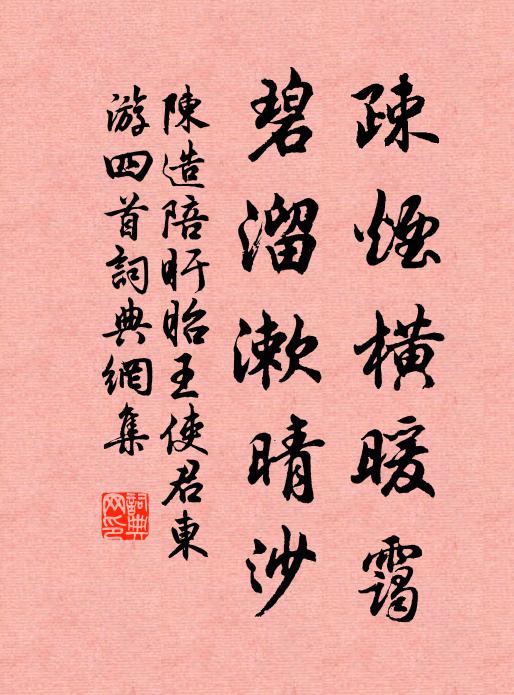 疎煙橫暖靄
碧溜漱晴沙
陳造陪盱眙王使君東
游四首詞典網集
詞典
网印